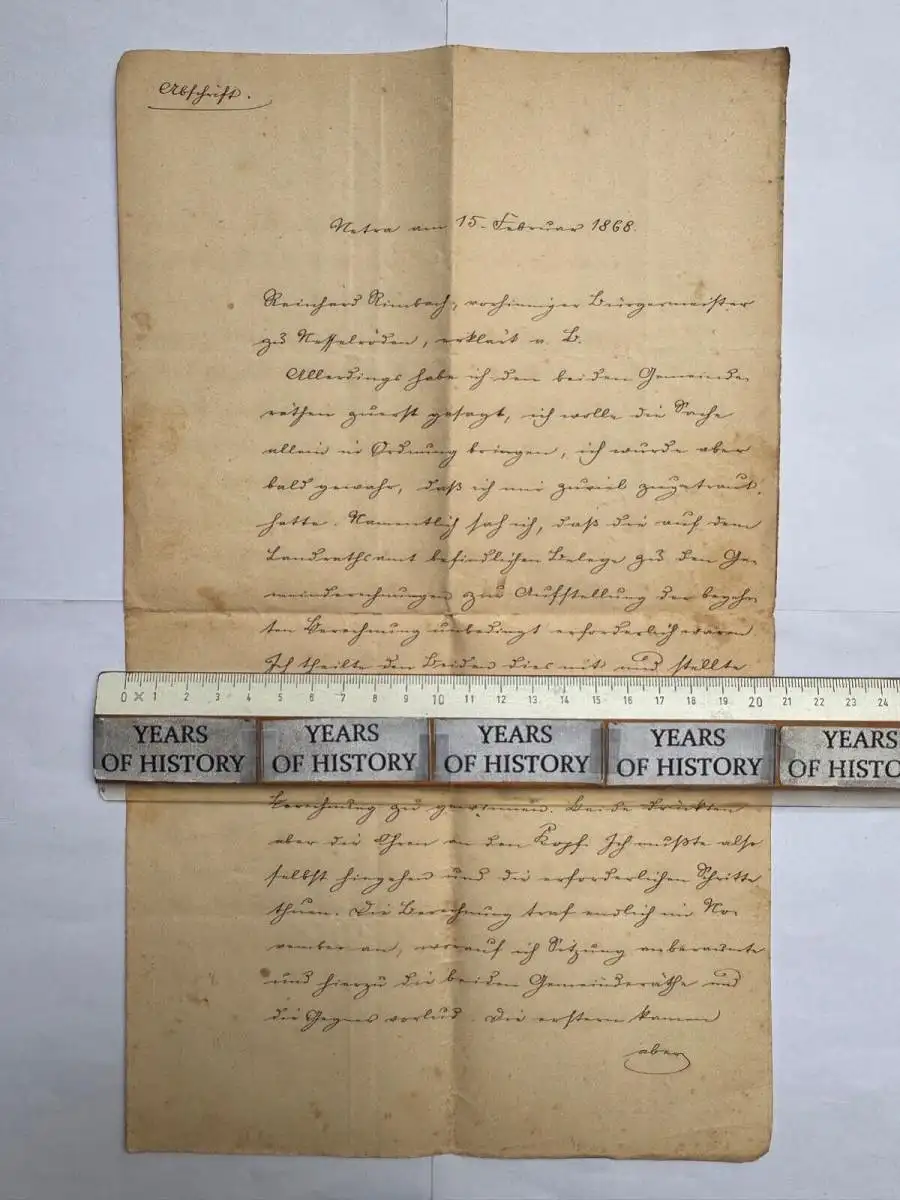 Abschrift.
Netra am 15. Februar 1868.
Reinhard Rimbach, vorhinniger Bürgermeister
zu Nesselröden, erklärt v. B.
Allerdings habe ich den beiden Gemeinde-
räthen zuerst gesagt, ich wolle die Sache
allein in Ordnung bringen, ich wurde aber
bald gewahr, daß ich mir zuviel zugetraut
hatte. Namentlich sah ich, daß die auf dem
Landrathsamt befindlichen Belege zu den Ge-
meinderechnungen zur Aufstellung der begehr-
ten Berechnung unbedingt erforderlich waren
Ich theilte den Beiden dies mit und stellte
0 1 2 3 4 5 6 7 8 9 10 11 12 13 14 15 16 17 18 19 20 21 22 23 24
YEARS OF HISTORY YEARS OF HISTORY YEARS OF HISTORY YEARS OF HISTORY YEARS OF HISTO
berechnung zu gewinnen. Beide drückten
aber die Ohren an den Kopf. Ich mußte also
selbst hingehen und die erforderlichen Schritte
thuen. Die Berechnung traf endlich im No-
vember an, worauf ich Sitzung anberaumte
und hierzu die beiden Gemeinderäthe und
die Gegner vorlud. Die erstern kamen
aber